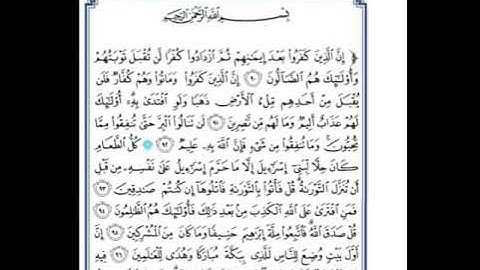 بِسْمِ اللَّهِ الرَّحْمَٰنِ الرَّحِيمِ
﴿ إِنَّ الَّذِينَ كَفَرُوا بَعْدَ إِيمَانِهِمْ ثُمَّ ازْدَادُوا كُفْرًا لَّن تُقْبَلَ تَوْبَتُهُمْ
وَأُولَٰئِكَ هُمُ الضَّالُّونَ ٩٠ إِنَّ الَّذِينَ كَفَرُوا وَمَاتُوا وَهُمْ كُفَّارٌ فَلَن
يُقْبَلَ مِنْ أَحَدِهِم مِّلْءُ الْأَرْضِ ذَهَبًا وَلَوِ افْتَدَىٰ بِهِ أُولَٰئِكَ
لَهُمْ عَذَابٌ أَلِيمٌ وَمَا لَهُم مِّن نَّاصِرِينَ ٩١ لَن تَنَالُوا الْبِرَّ حَتَّىٰ تُنفِقُوا مِمَّا
تُحِبُّونَ وَمَا تُنفِقُوا مِن شَيْءٍ فَإِنَّ اللَّهَ بِهِ عَلِيمٌ ٩٢ ۞ كُلُّ الطَّعَامِ
كَانَ حِلًّا لِّبَنِي إِسْرَائِيلَ إِلَّا مَا حَرَّمَ إِسْرَائِيلُ عَلَىٰ نَفْسِهِ مِن قَبْلِ
أَن تُنَزَّلَ التَّوْرَاةُ قُلْ فَأْتُوا بِالتَّوْرَاةِ فَاتْلُوهَا إِن كُنتُمْ صَادِقِينَ ٩٣
فَمَنِ افْتَرَىٰ عَلَى اللَّهِ الْكَذِبَ مِن بَعْدِ ذَٰلِكَ فَأُولَٰئِكَ هُمُ الظَّالِمُونَ ٩٤
قُلْ صَدَقَ اللَّهُ فَاتَّبِعُوا مِلَّةَ إِبْرَاهِيمَ حَنِيفًا وَمَا كَانَ مِنَ الْمُشْرِكِينَ ٩٥ إِنَّ
أَوَّلَ بَيْتٍ وُضِعَ لِلنَّاسِ لَلَّذِي بِبَكَّةَ مُبَارَكًا وَهُدًى لِّلْعَالَمِينَ ٩٦